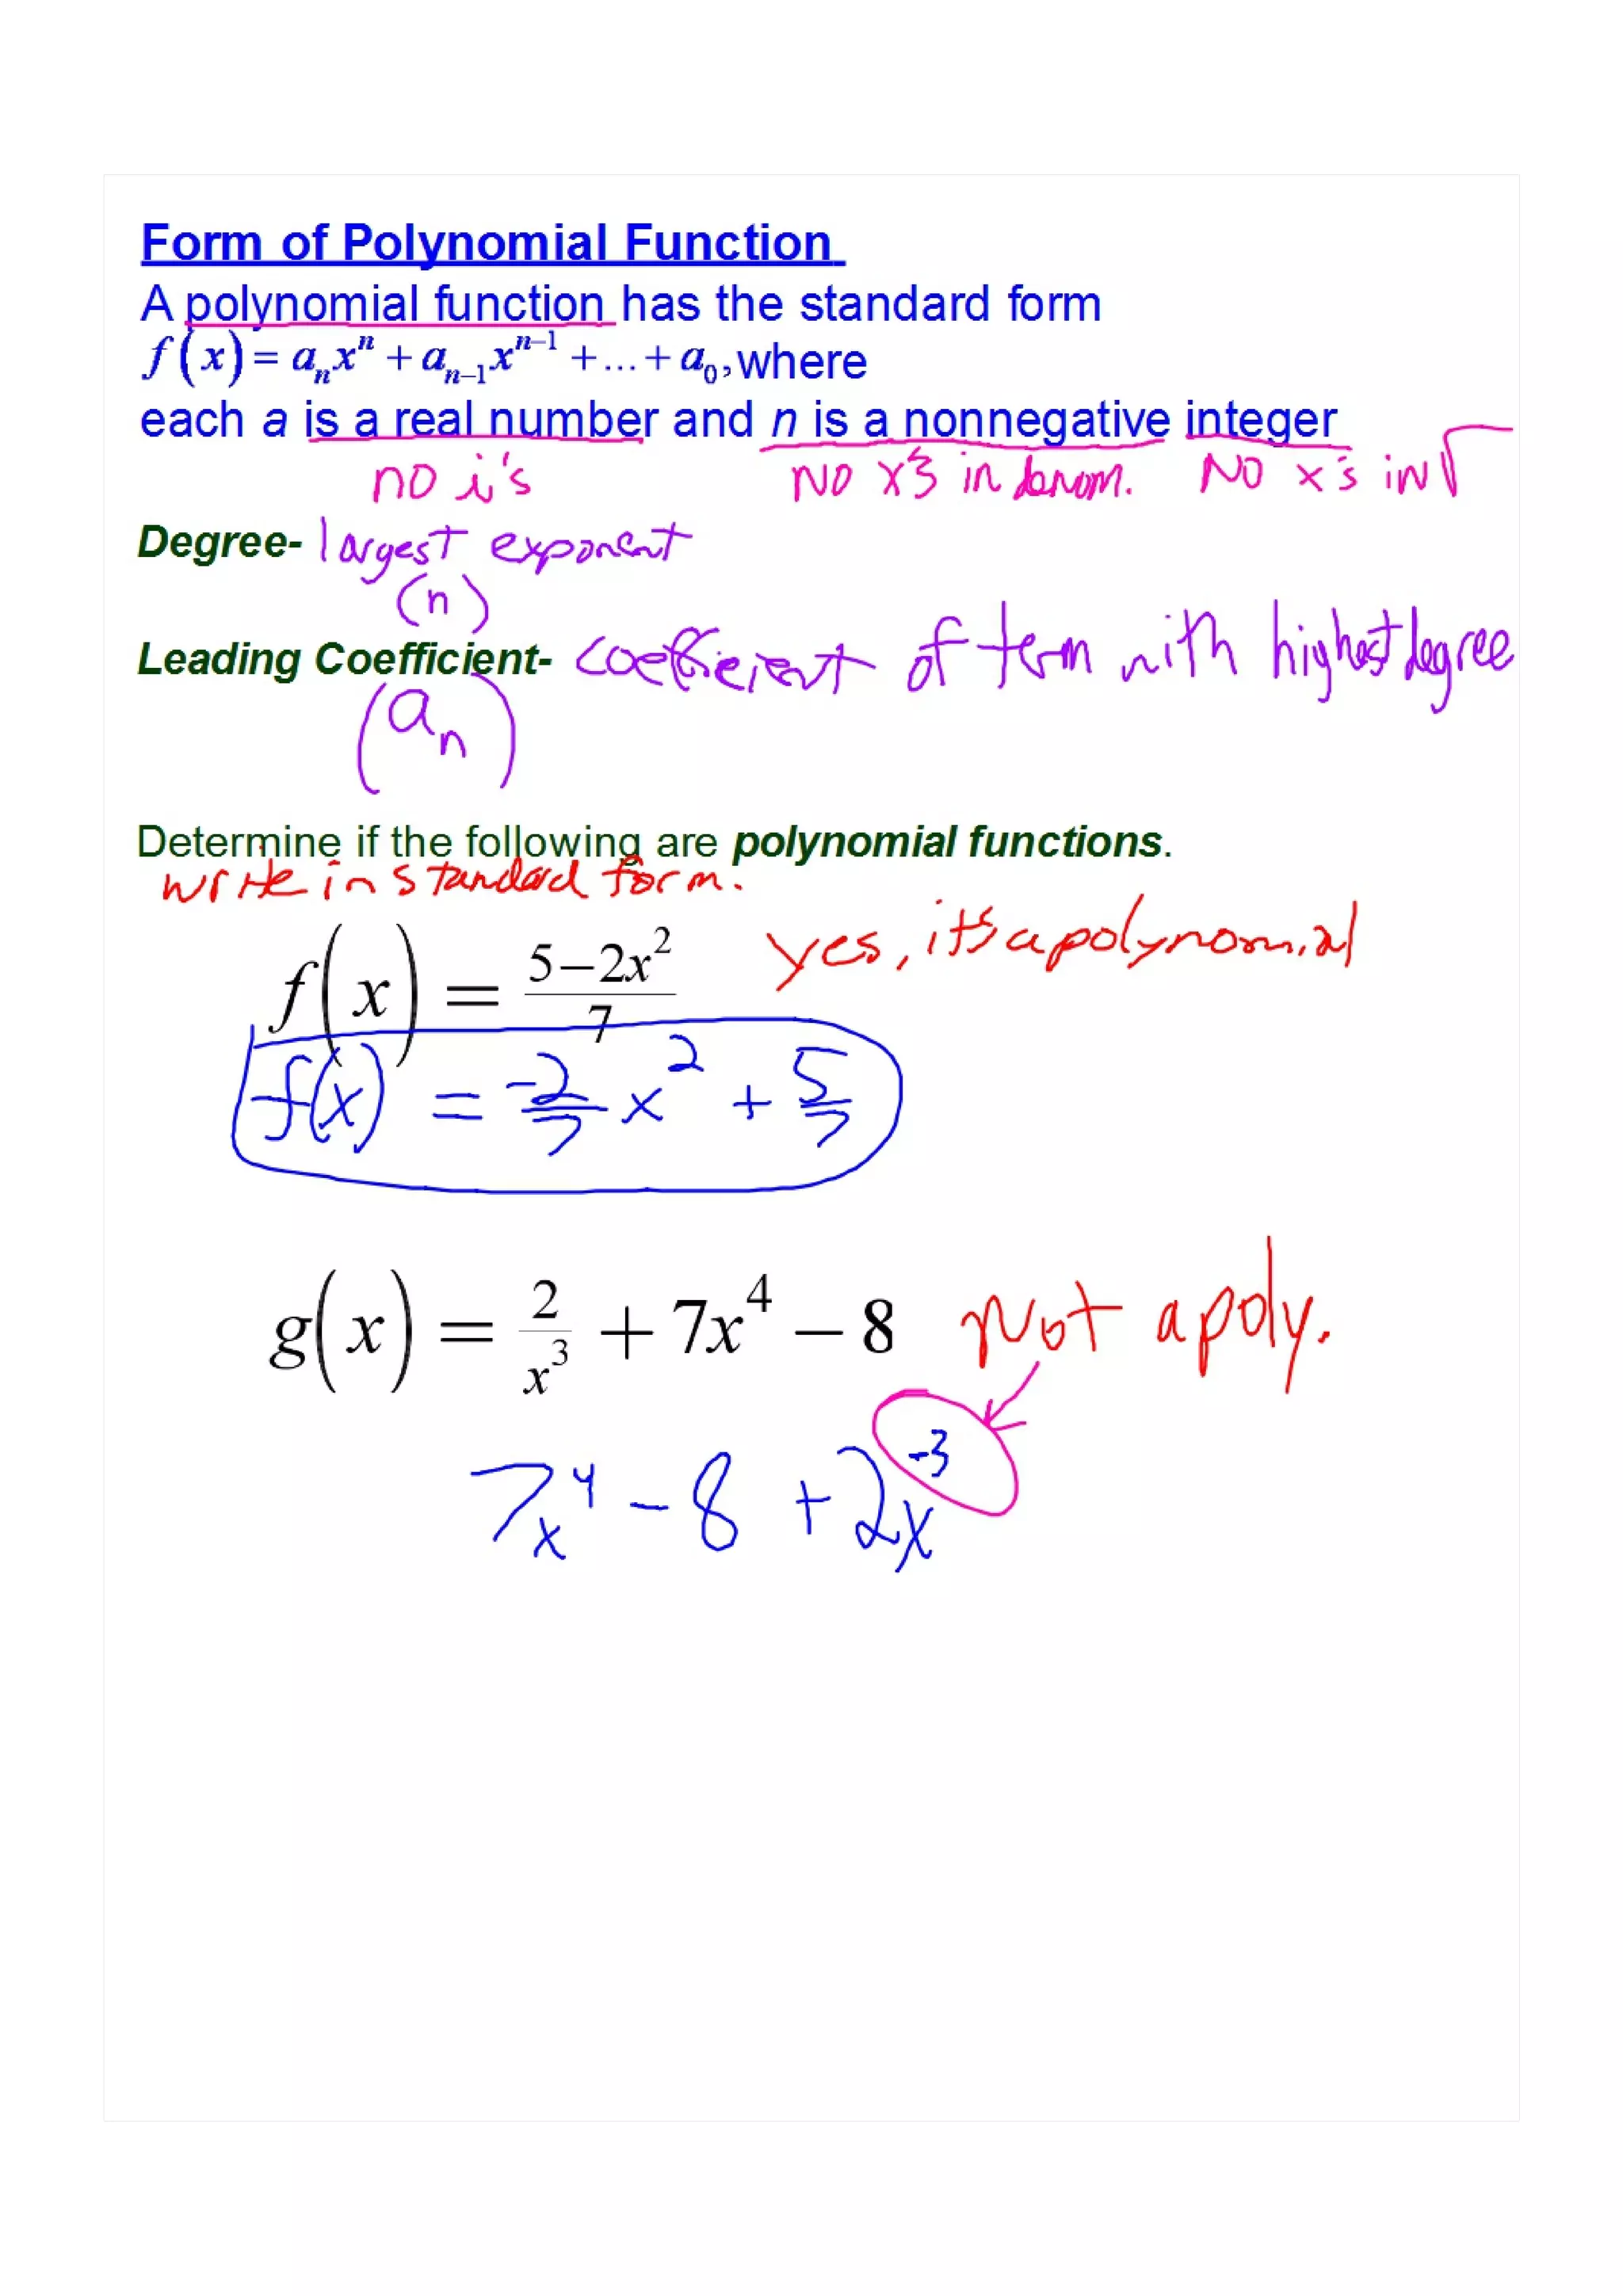 Form of Polynomial Function
A polynomial function has the standard form
f(x) = aₙxⁿ + aₙ₋₁xⁿ⁻¹ + ... + a₀, where
each a is a real number and n is a nonnegative integer
no i's NO x's in denom. NO x's in √
Degree- largest exponent
(n)
Leading Coefficient- coefficient of term with highest degree
(aₙ)
Determine if the following are polynomial functions.
write in standard form.
f(x) = (5-2x²)/7 yes, it's a polynomial
f(x) = -2/7 x² + 5/7
g(x) = 2/x³ + 7x⁴ - 8 Not a poly.
7x⁴ - 8 + 2x⁻³